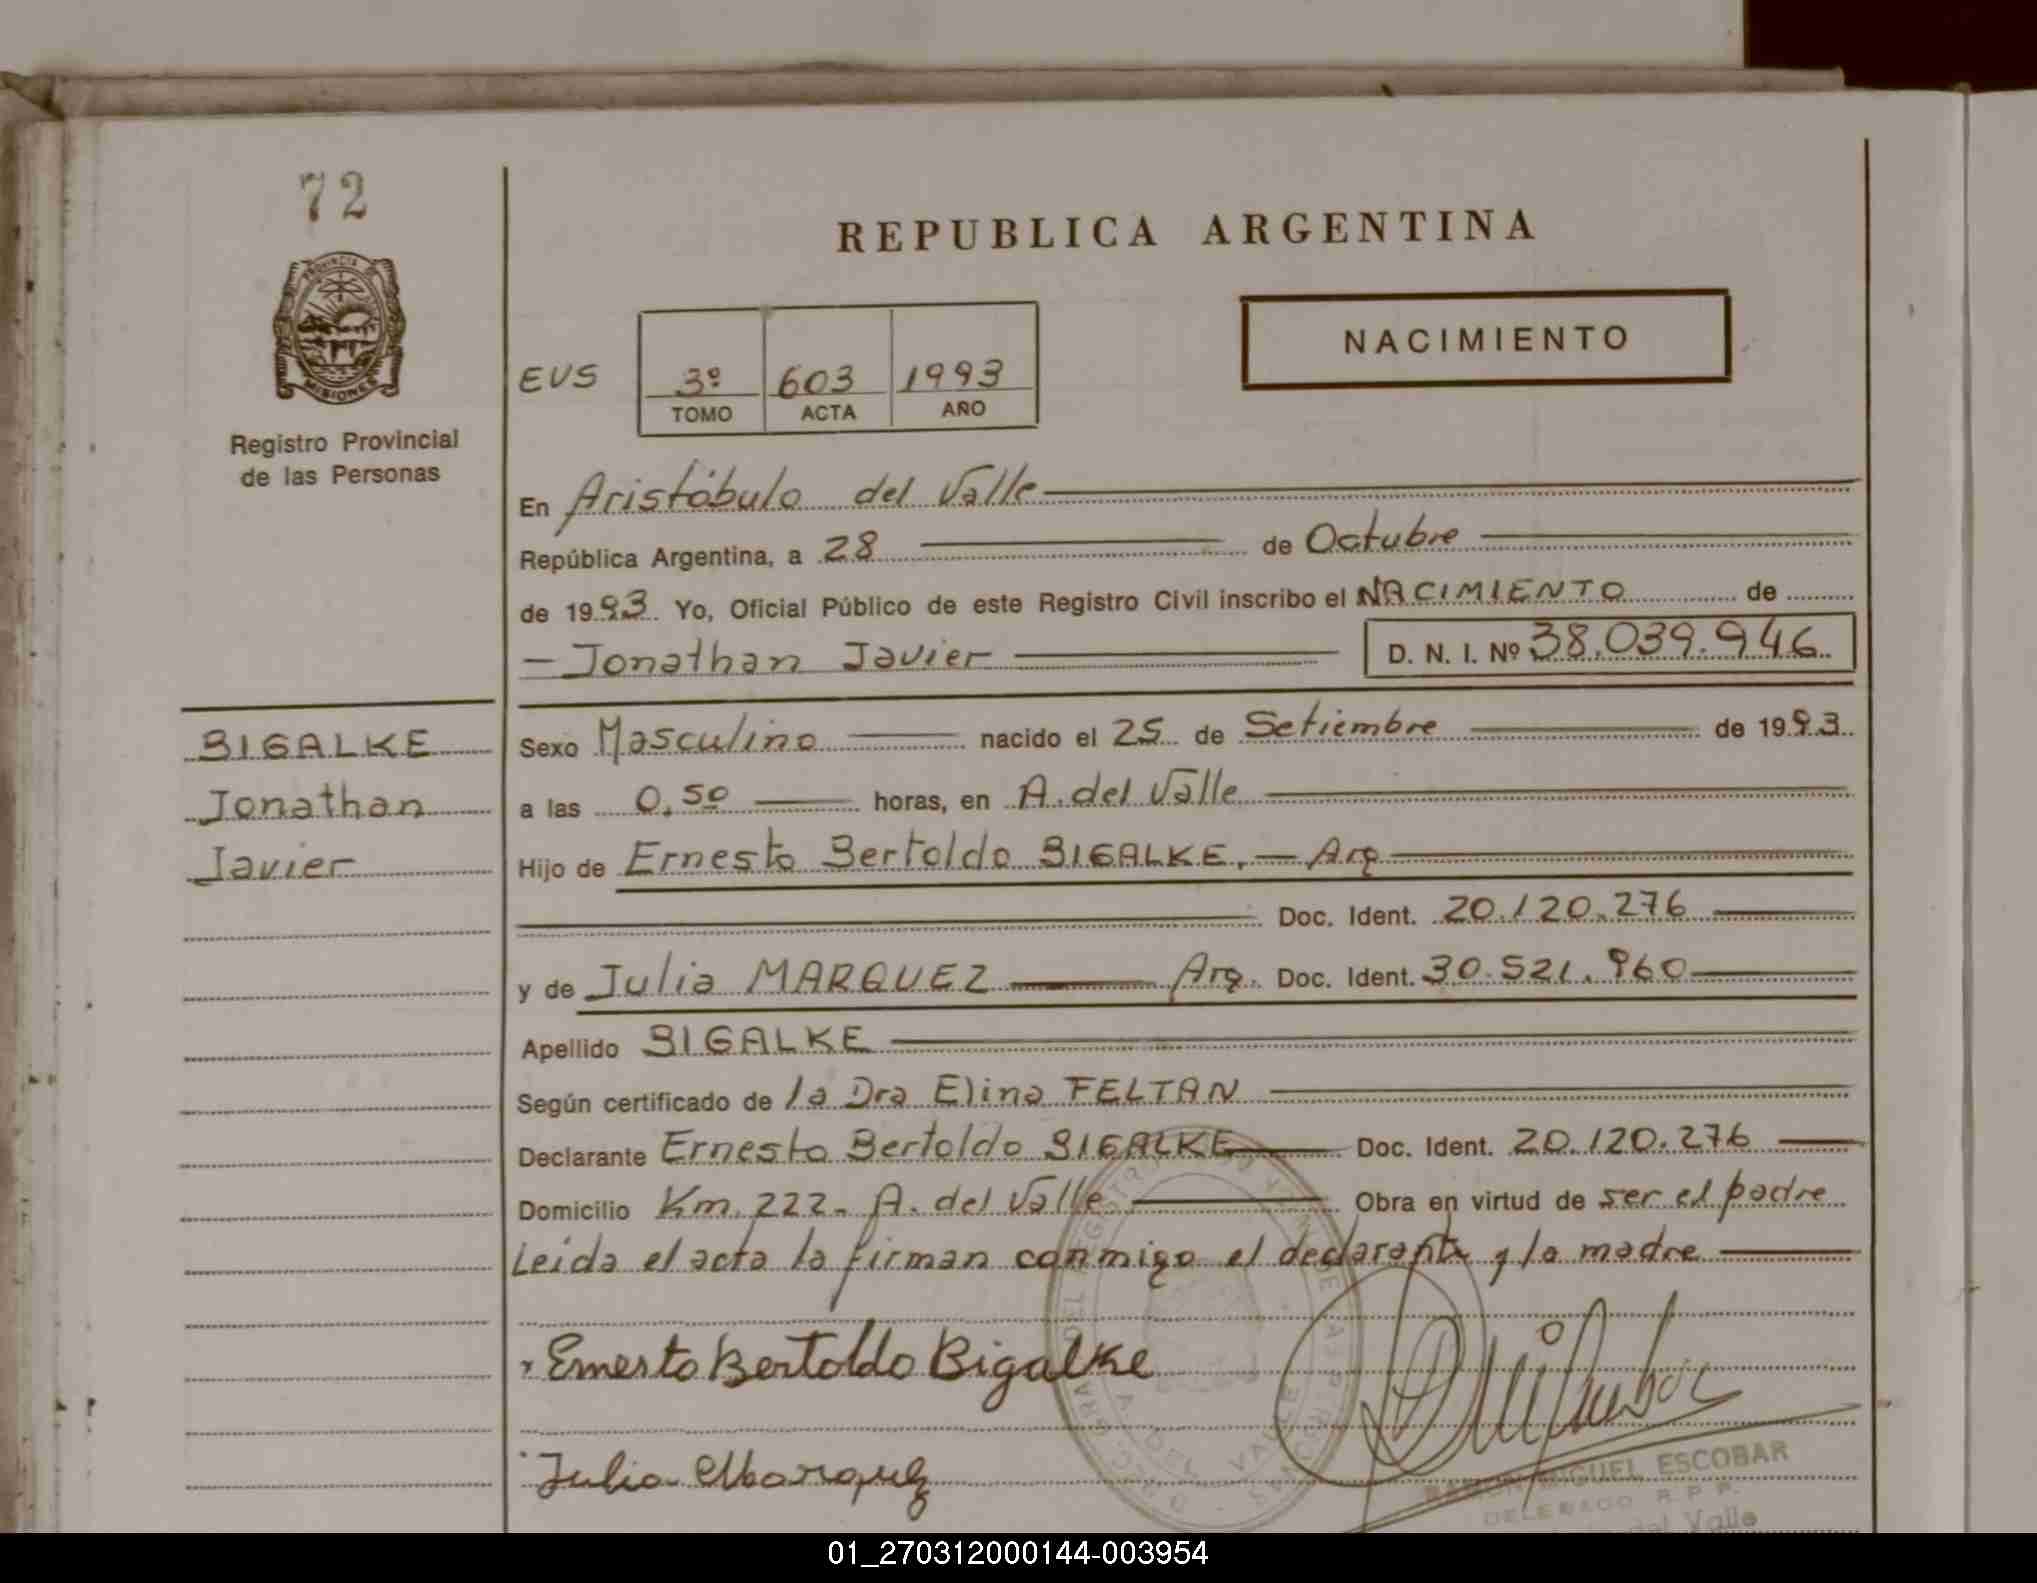 72
PROVINCIA DE
MISIONES
Registro Provincial
de las Personas
REPUBLICA ARGENTINA
NACIMIENTO
EVS
3º 603 1993
TOMO ACTA AÑO
En Aristóbulo del Valle
República Argentina, a 28 de Octubre
de 1993 Yo, Oficial Público de este Registro Civil inscribo el NACIMIENTO de
Jonathan Javier D. N. I. Nº 38.039.946
BIGALKE
Jonathan
Javier
Sexo Masculino nacido el 25 de Setiembre de 1993
a las 0,50 horas, en A. del Valle
Hijo de Ernesto Bertoldo BIGALKE, — Arg
Doc. Ident. 20.120.276
y de Julia MARQUEZ Arg. Doc. Ident. 30.521.960
Apellido BIGALKE
Según certificado de la Dra Elina FELTAN
Declarante Ernesto Bertoldo BIGALKE Doc. Ident. 20.120.276
Domicilio Km. 222- A. del Valle Obra en virtud de ser el padre
Leida el acta la firman conmigo el declarante y la madre
Ernesto Bertoldo Bigalke
Julia Marquez
RAMON MIGUEL ESCOBAR
DELEGADO R.P.P.
del Valle
01_270312000144-003954